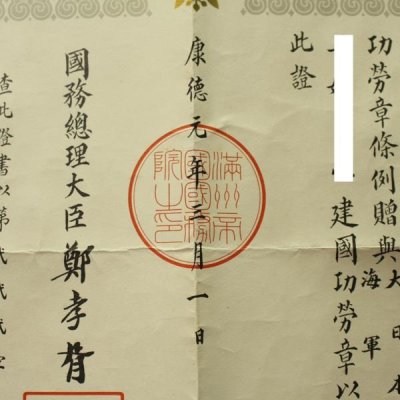 功勞章條例贈與大日本
海軍
建國功勞章以
此證
康德元年三月一日
滿洲帝
國國務
院之印
國務總理大臣鄭孝胥
查此證書以第